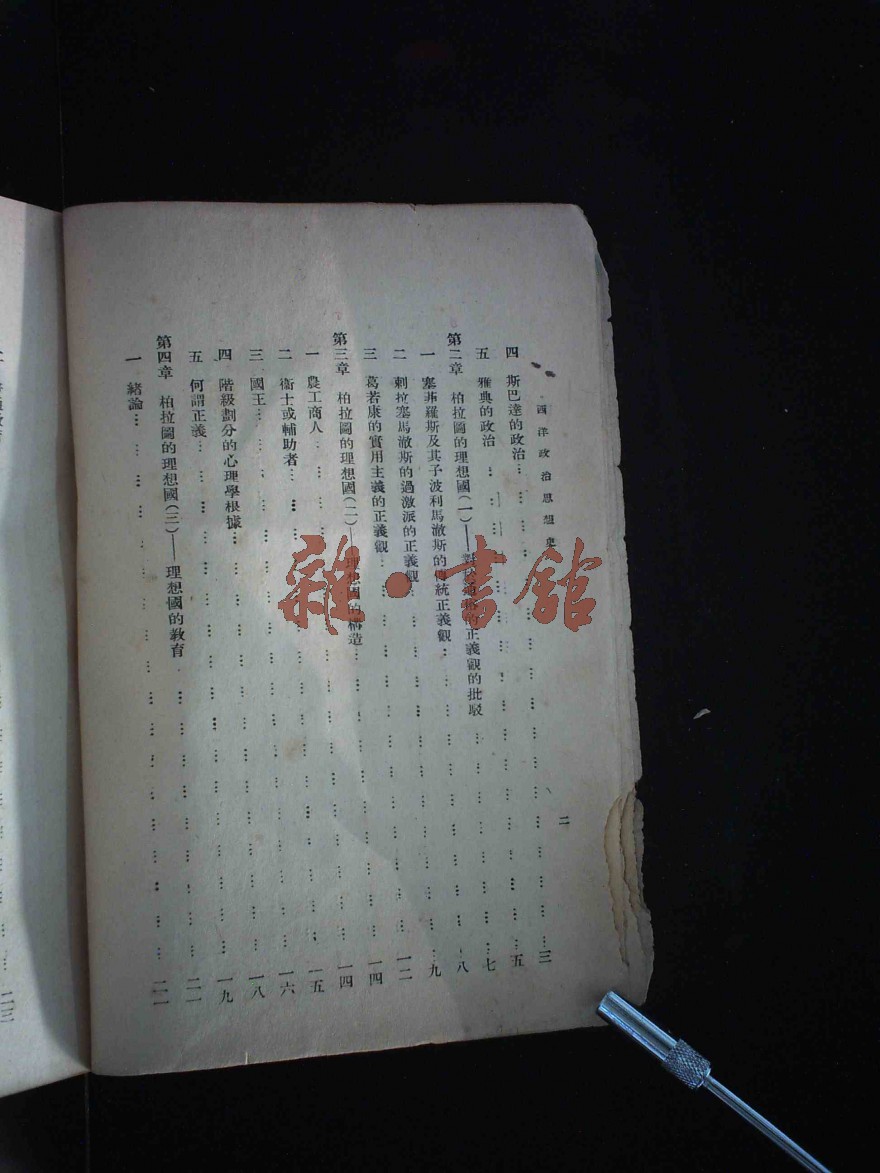 西洋政治思想史
二
四 斯巴達的政治……三
五 雅典的政治……五
第二章 柏拉圖的理想國(一)——對於通俗的正義觀的批駁……七
一 塞菲羅斯及其子波利馬澈斯的傳統正義觀……八
二 刺拉塞馬澈斯的過激派的正義觀……九
三 葛若康的實用主義的正義觀……一二
第三章 柏拉圖的理想國(二)——理想國的構造……一四
一 農工商人……一四
二 衞士或輔助者……一五
三 國王……一六
四 階級劃分的心理學根據……一八
五 何謂正義……一九
第四章 柏拉圖的理想國(三)——理想國的教育……二一
一 緒論……二一
二三
雜·書館